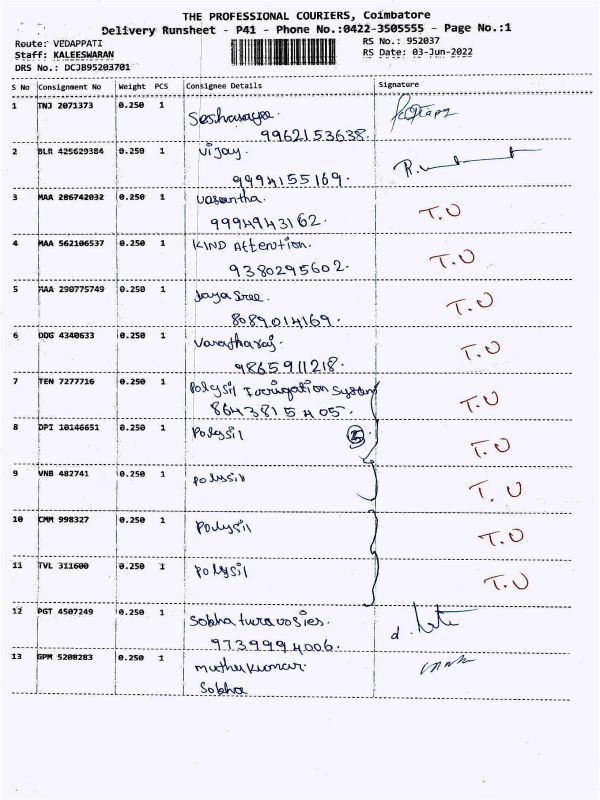 THE PROFESSIONAL COURIERS, Coimbatore
Delivery Runsheet - P41 - Phone No.:0422-3505555 - Page No.:1
Route: VEDAPPATI RS No.: 952037
Staff: KALEESWARAN RS Date: 03-Jun-2022
DRS No.: DCJB95203701
S No Consignment No Weight PCS Consignee Details Signature
1 TNJ 2071373 0.250 1 Seshasayee
9962153638.
2 BLR 425629384 0.250 1 Vijay.
9994155169.
3 MAA 286742032 0.250 1 Vasantha. T.U
9994943162.
4 MAA 562106537 0.250 1 KIND Attention. T.U
9380295602.
5 MAA 290775749 0.250 1 Jaya Sree. T.U
8089014169.
6 ODG 4340633 0.250 1 Varatharaj. T.U
9865911218.
7 TEN 7277716 0.250 1 Polysil Irrigation System T.U
8643815405.
8 DPI 10146651 0.250 1 Polysil 5 T.U
9 VNB 482741 0.250 1 Polysil T.U
10 CMM 998327 0.250 1 Polysil T.U
11 TVL 311600 0.250 1 Polysil T.U
12 PGT 4507249 0.250 1 Sobha
9739994006.
13 GPM 5208283 0.250 1 muthukumar.
Sobha